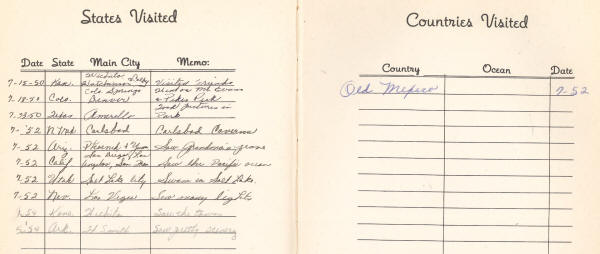 States Visited
Date State Main City Memo:
Wichita
7-15-50 Kan. Hutchinson Visited Friends
Colo Springs Mt Evans
7-18-50 Colo. Denver & Pikes Peak
Took pictures in
7-50 Texas Amarillo Park
7- '52 N Mex Carlsbad Carlsbad Caverns
7-52 Ariz. Phoenix & Yuma Saw Grandma's grave
San Diego, Los
7-52 Calif. Angeles, San Fran Saw the Pacific ocean
7-52 Utah Salt Lake City Swam in Salt Lake.
7-52 Nev. Las Vegas Saw many lights
54 Kans. Wichita Saw the town
54 Ark. Ft Smith Saw pretty scenery
Countries Visited
Country Ocean Date
Old Mexico 7-52